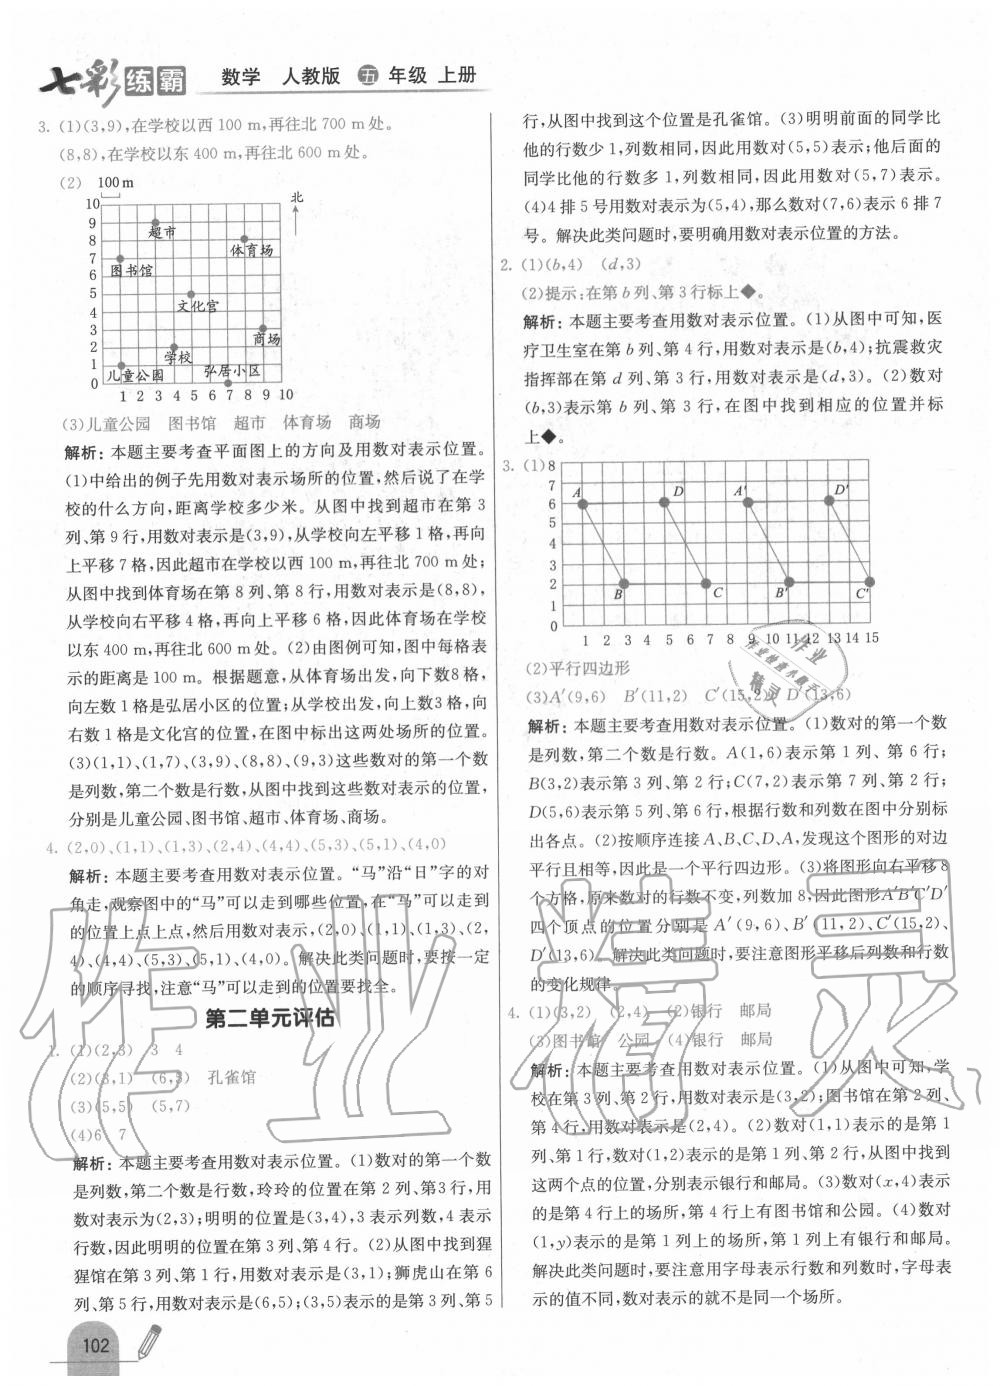 七彩练霸 数学 人教版 五 年级 上册
3. (1)(3,9),在学校以西 100 m,再往北 700 m 处。
(8,8),在学校以东 400 m,再往北 600 m 处。
(2) 100 m
北
10
9
8
7
6
5
4
3
2
1
0
超市
体育场
图书馆
文化宫
商场
学校
儿童公园
弘居小区
1 2 3 4 5 6 7 8 9 10
(3)儿童公园 图书馆 超市 体育场 商场
解析:本题主要考查平面图上的方向及用数对表示位置。
(1)中给出的例子先用数对表示场所的位置,然后说了在学
校的什么方向,距离学校多少米。从图中找到超市在第 3
列、第 9 行,用数对表示是(3,9),从学校向左平移 1 格,再向
上平移 7 格,因此超市在学校以西 100 m,再往北 700 m 处;
从图中找到体育场在第 8 列、第 8 行,用数对表示是(8,8),
从学校向右平移 4 格,再向上平移 6 格,因此体育场在学校
以东 400 m,再往北 600 m 处。(2)由图例可知,图中每格表
示的距离是 100 m。根据题意,从体育场出发,向下数8 格,
向左数 1 格是弘居小区的位置;从学校出发,向上数3 格,向
右数 1 格是文化宫的位置,在图中标出这两处场所的位置。
(3)(1,1)、(1,7)、(3,9)、(8,8)、(9,3)这些数对的第一个数
是列数,第二个数是行数,从图中找到这些数对表示的位置,
分别是儿童公园、图书馆、超市、体育场、商场。
4. (2,0)、(1,1)、(1,3)、(2,4)、(4,4)、(5,3)、(5,1)、(4,0)
解析:本题主要考查用数对表示位置。“马”沿“日”字的对
角走,观察图中的“马”可以走到哪些位置,在“马”可以走到
的位置上点上点,然后用数对表示,(2,0)、(1,1)、(1,3)、(2,
4)、(4,4)、(5,3)、(5,1)、(4,0)。解决此类问题时,要按一定
的顺序寻找,注意“马”可以走到的位置要找全。
第二单元评估
1. (1)(2,3) 3 4
(2)(3,1) (6,5) 孔雀馆
(3)(5,5) (5,7)
(4)6 7
解析:本题主要考查用数对表示位置。(1)数对的第一个数
是列数,第二个数是行数,玲玲的位置在第 2 列、第3 行,用
数对表示为(2,3);明明的位置是(3,4),3 表示列数,4 表示
行数,因此明明的位置在第 3 列、第 4 行。(2)从图中找到猩
猩馆在第 3 列、第 1 行,用数对表示是(3,1);狮虎山在第 6
列、第 5 行,用数对表示是(6,5);(3,5)表示的是第 3 列、第 5
行,从图中找到这个位置是孔雀馆。(3)明明前面的同学比
他的行数少 1,列数相同,因此用数对(5,5)表示;他后面的
同学比他的行数多 1,列数相同,因此用数对(5,7)表示。
(4)4 排 5 号用数对表示为(5,4),那么数对(7,6)表示 6 排 7
号。解决此类问题时,要明确用数对表示位置的方法。
2. (1)(b,4) (d,3)
(2)提示:在第 b 列、第 3 行标上◆。
解析:本题主要考查用数对表示位置。(1)从图中可知,医
疗卫生室在第 b 列、第 4 行,用数对表示是(b,4);抗震救灾
指挥部在第 d 列、第 3 行,用数对表示是(d,3)。(2)数对
(b,3)表示第 b 列、第 3 行,在图中找到相应的位置并标
上◆。
3. (1)
8
7
6
5
4
3
2
1
0
A
D
A′
D′
B
C
B′
C′
1 2 3 4 5 6 7 8 9 10 11 12 13 14 15
(2)平行四边形
(3)A′(9,6) B′(11,2) C′(15,2) D′(13,6)
解析:本题主要考查用数对表示位置。(1)数对的第一个数
是列数,第二个数是行数。A(1,6)表示第 1 列、第 6 行;
B(3,2)表示第 3 列、第 2 行;C(7,2)表示第 7 列、第 2 行;
D(5,6)表示第 5 列、第 6 行,根据行数和列数在图中分别标
出各点。(2)按顺序连接 A、B、C、D、A,发现这个图形的对边
平行且相等,因此是一个平行四边形。(3)将图形向右平移 8
个方格,原来数对的行数不变,列数加 8,因此图形A′B′C′D′
四个顶点的位置分别是 A′(9,6)、B′(11,2)、C′(15,2)、
D′(13,6)。解决此类问题时,要注意图形平移后列数和行数
的变化规律。
4. (1)(3,2) (2,4) (2)银行 邮局
(3)图书馆 公园 (4)银行 邮局
解析:本题主要考查用数对表示位置。(1)从图中可知,学
校在第 3 列、第 2 行,用数对表示是(3,2);图书馆在第 2 列、
第 4 行,用数对表示是(2,4)。(2)数对(1,1)表示的是第 1
列、第 1 行,数对(1,2)表示的是第 1 列、第 2 行,从图中找到
这两个点的位置,分别表示银行和邮局。(3)数对(x,4)表示
的是第 4 行上的场所,第 4 行上有图书馆和公园。(4)数对
(1,y)表示的是第 1 列上的场所,第 1 列上有银行和邮局。
解决此类问题时,要注意用字母表示行数和列数时,字母表
示的值不同,数对表示的就不是同一个场所。
102
作业精灵